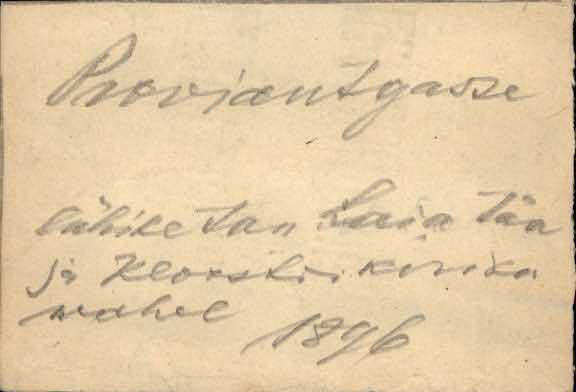 Proviantgasse
lühike tän Laia tän
ja Kloostri kirika
wahel 1896